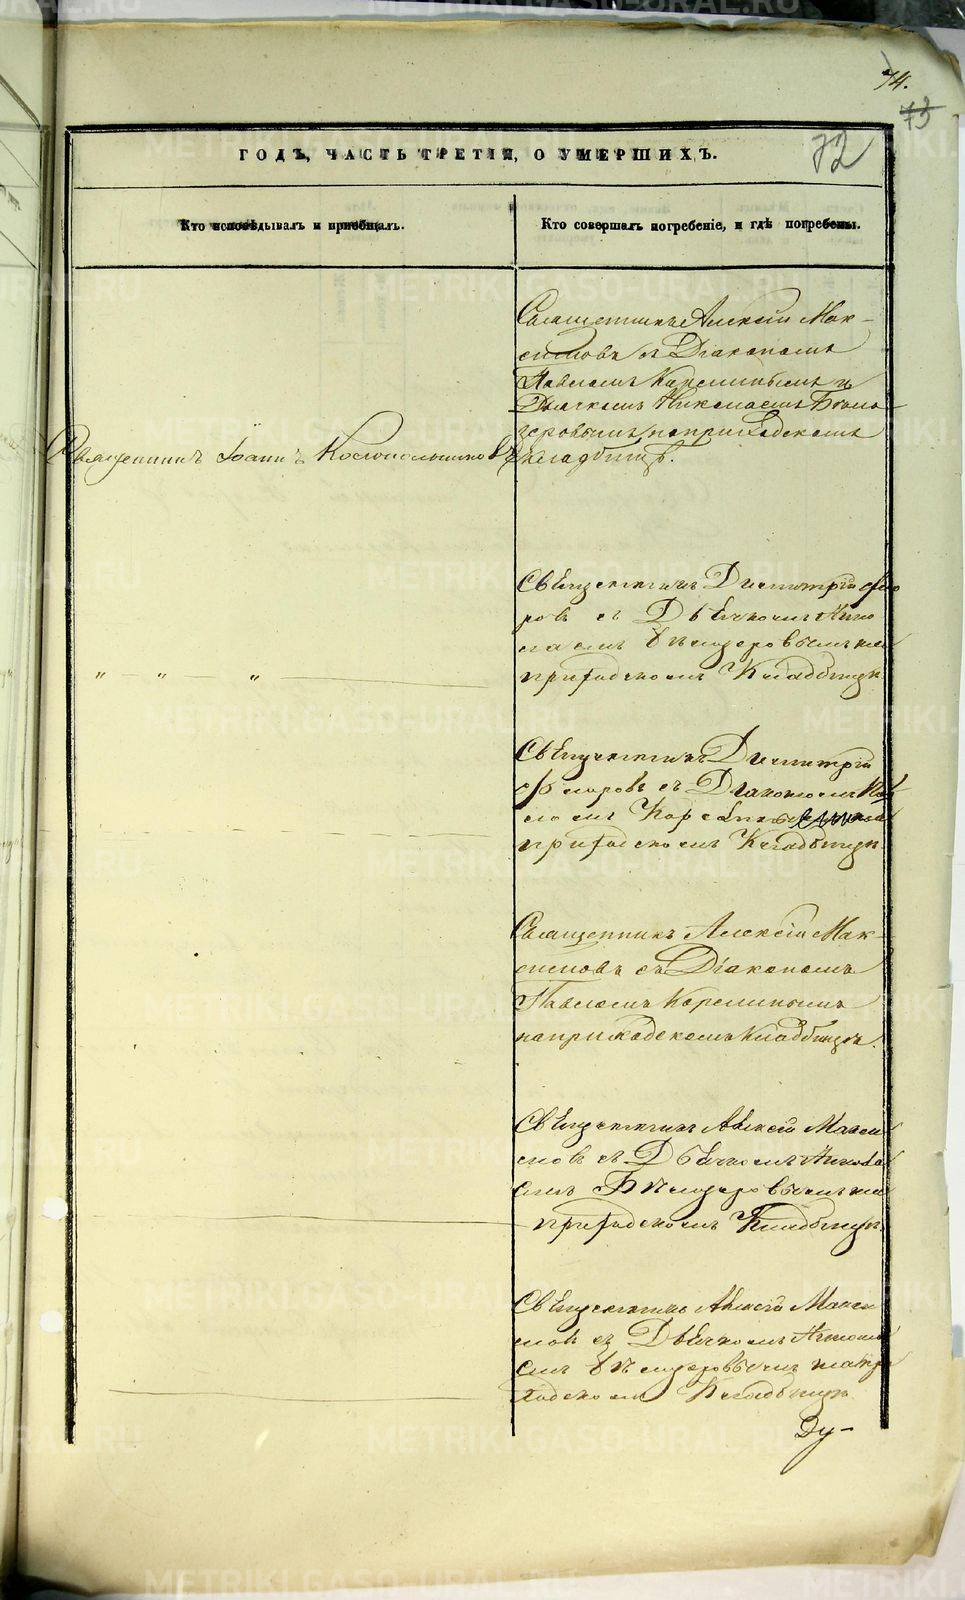 74.
73
72
ГОДЪ, ЧАСТЬ ТРЕТІЯ, О УМЕРШИХЪ.
Кто исповѣдывалъ и пріобщалъ.
Кто совершалъ погребеніе, и гдѣ погребены.
Священникъ Алексій Мак-
симовъ съ Діакономъ
Павломъ Карелинымъ и
Дьячкомъ Николаемъ Бѣло-
зеровымъ на приходскомъ
кладбищѣ.
Священникъ Іоаннъ
Священникъ Димитрій Фло
ровъ съ Дьячкомъ Нико
лаемъ Бѣлозеровымъ на
приходскомъ Кладбищѣ
" " "
Священникъ Димитрій
Флоровъ съ Діакономъ Пав
ломъ
приходскомъ Кладбищѣ.
Священникъ Алексій Мак-
симовъ съ Діакономъ
Павломъ Карелинымъ
на приходскомъ Кладбищѣ.
Священникъ Алексій Макси
мовъ съ Дьячкомъ Никола
емъ Бѣлозеровымъ на
приходскомъ Кладбищѣ.
Священникъ Алексій Макси
мовъ съ Дьячкомъ Никола
емъ Бѣлозеровымъ на при
ходскомъ Кладбищѣ.
Ду-
METRIKI.GASO-URAL.RU